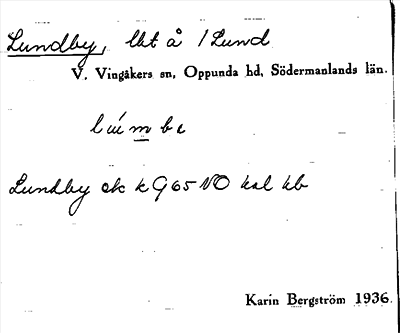 Lundby, lht å 1 Lund
V. Vingåkers sn, Oppunda hd, Södermanlands län.
Lundby ek k G 65 NO kal kb
Karin Bergström 1936